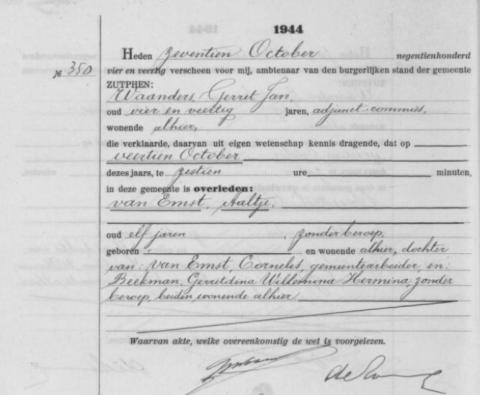 1944
Heden zeventien October negentienhonderd
№ 350 vier en veertig verscheen voor mij, ambtenaar van den burgerlijken stand der gemeente
ZUTPHEN:
Waanders, Gerrit Jan,
oud vier en veertig jaren, adjunct-commies,
wonende alhier,
die verklaarde, daarvan uit eigen wetenschap kennis dragende, dat op
veertien October
dezes jaars, te zestien ure minuten,
in deze gemeente is overleden:
van Emst, Aaltje,
oud elf jaren, zonder beroep,
geboren en wonende alhier, dochter
van: van Emst, Cornelis, gemeentearbeider, en:
Beekman, Gerritdina Willemina Hermina, zonder
beroep, beiden wonende alhier
Waarvan akte, welke overeenkomstig de wet is voorgelezen.